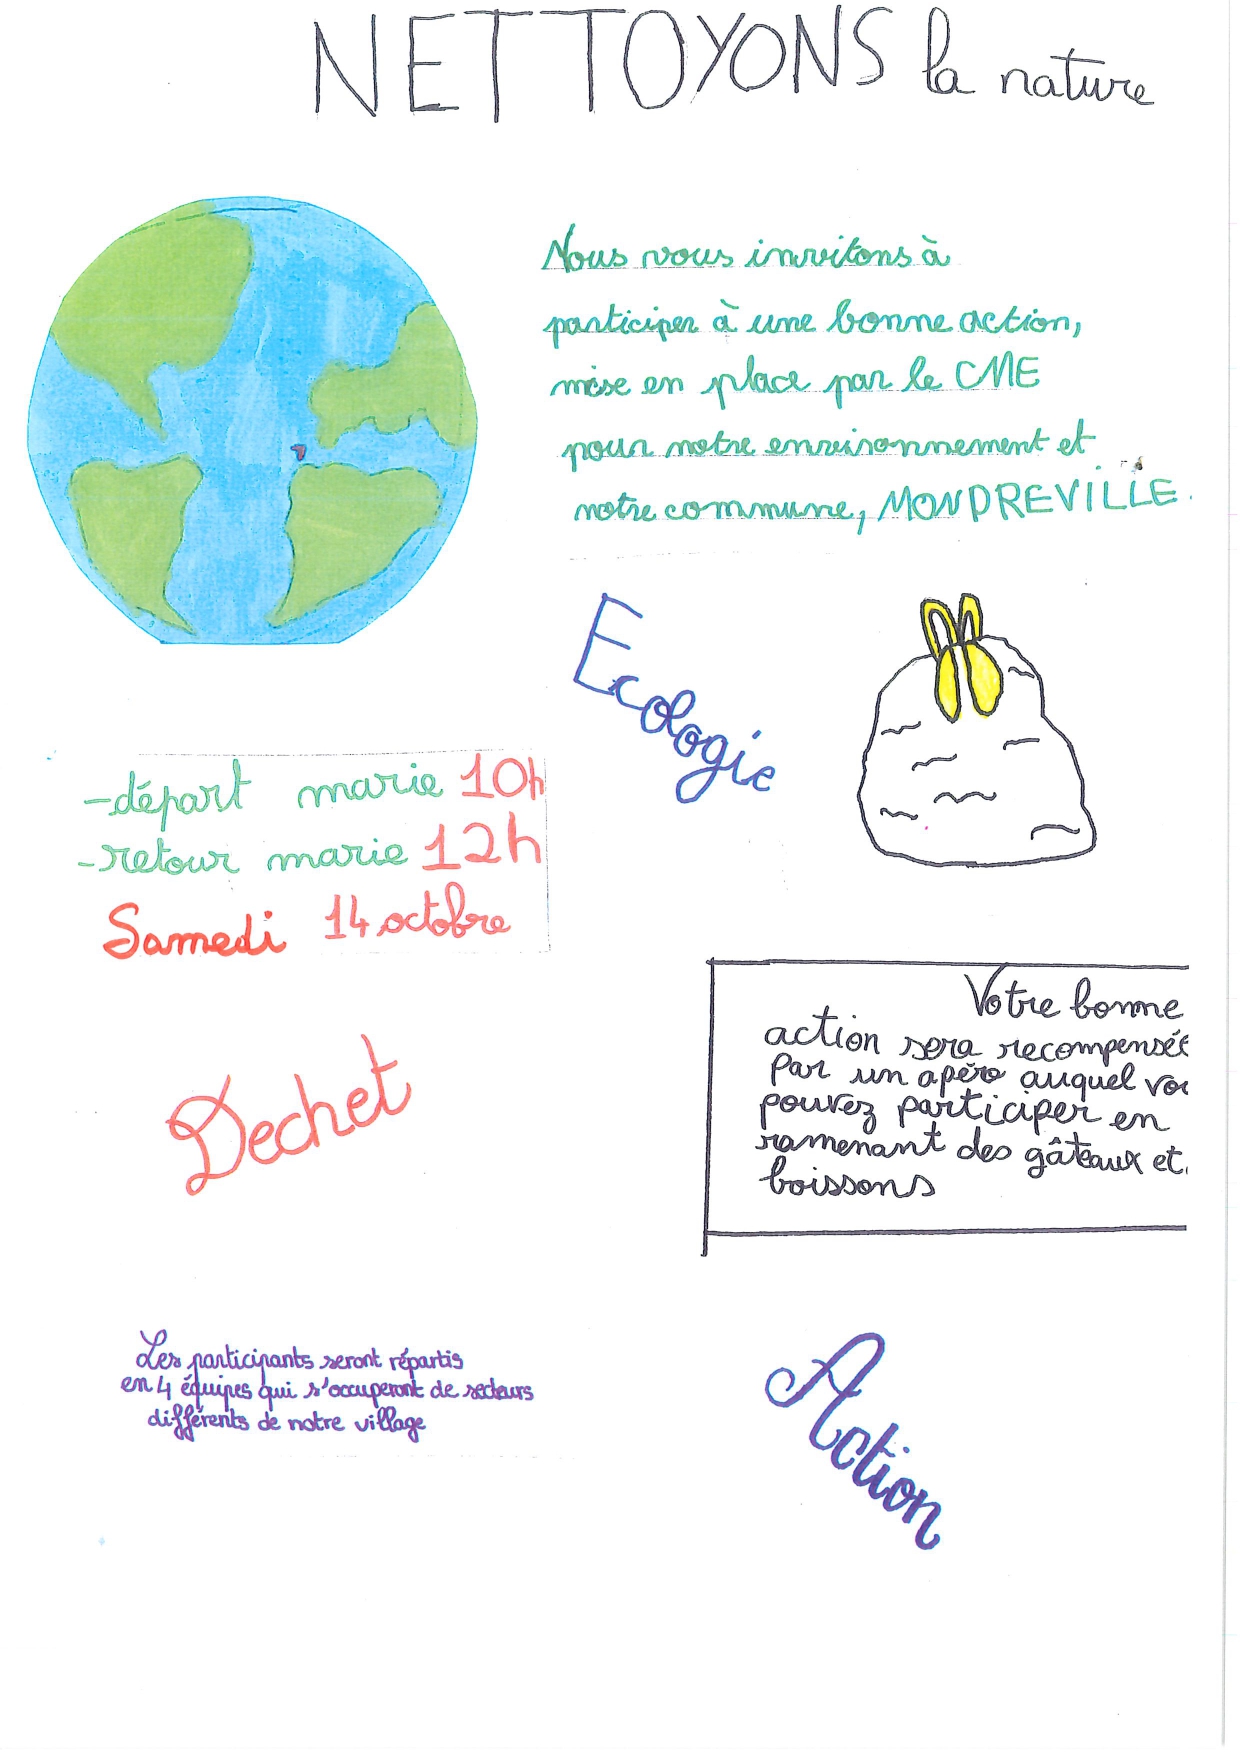 NETTOYONS la nature
Nous vous invitons à
participer à une bonne action,
mise en place par le CME
pour notre environnement et
notre commune, MONDREVILLE.
Ecologie
-départ marie 10h
-retour marie 12h
Samedi 14 octobre
Votre bonne
action sera recompensée
Par un apéro auquel
pouvez participer en
ramenant des gâteaux et
boissons
Dechet
Les participants seront répartis
en 4 équipes qui s'occuperont de secteurs
différents de notre village
Action